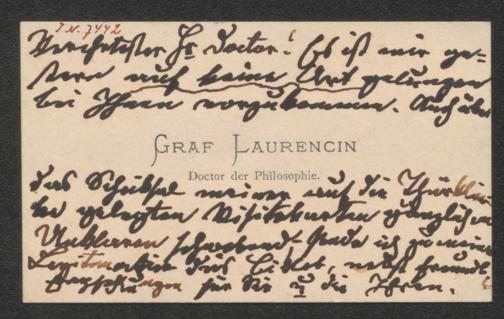 I.N. 7442
Verehrtester Hr Doctor! Es ist mir ge-
stern auf keine Art gelungen
bei Ihnen vorzukommen. Auch über
GRAF LAURENCIN
Doctor der Philosophie.
das Schicksal meiner auf die Thürklin-
ke gelegten Visitkarten gänzlich im
Unklaren schwebend, sende ich zu meiner
Legitimation dieß Billet, nebst freundl.
für Sie u die Ihren.